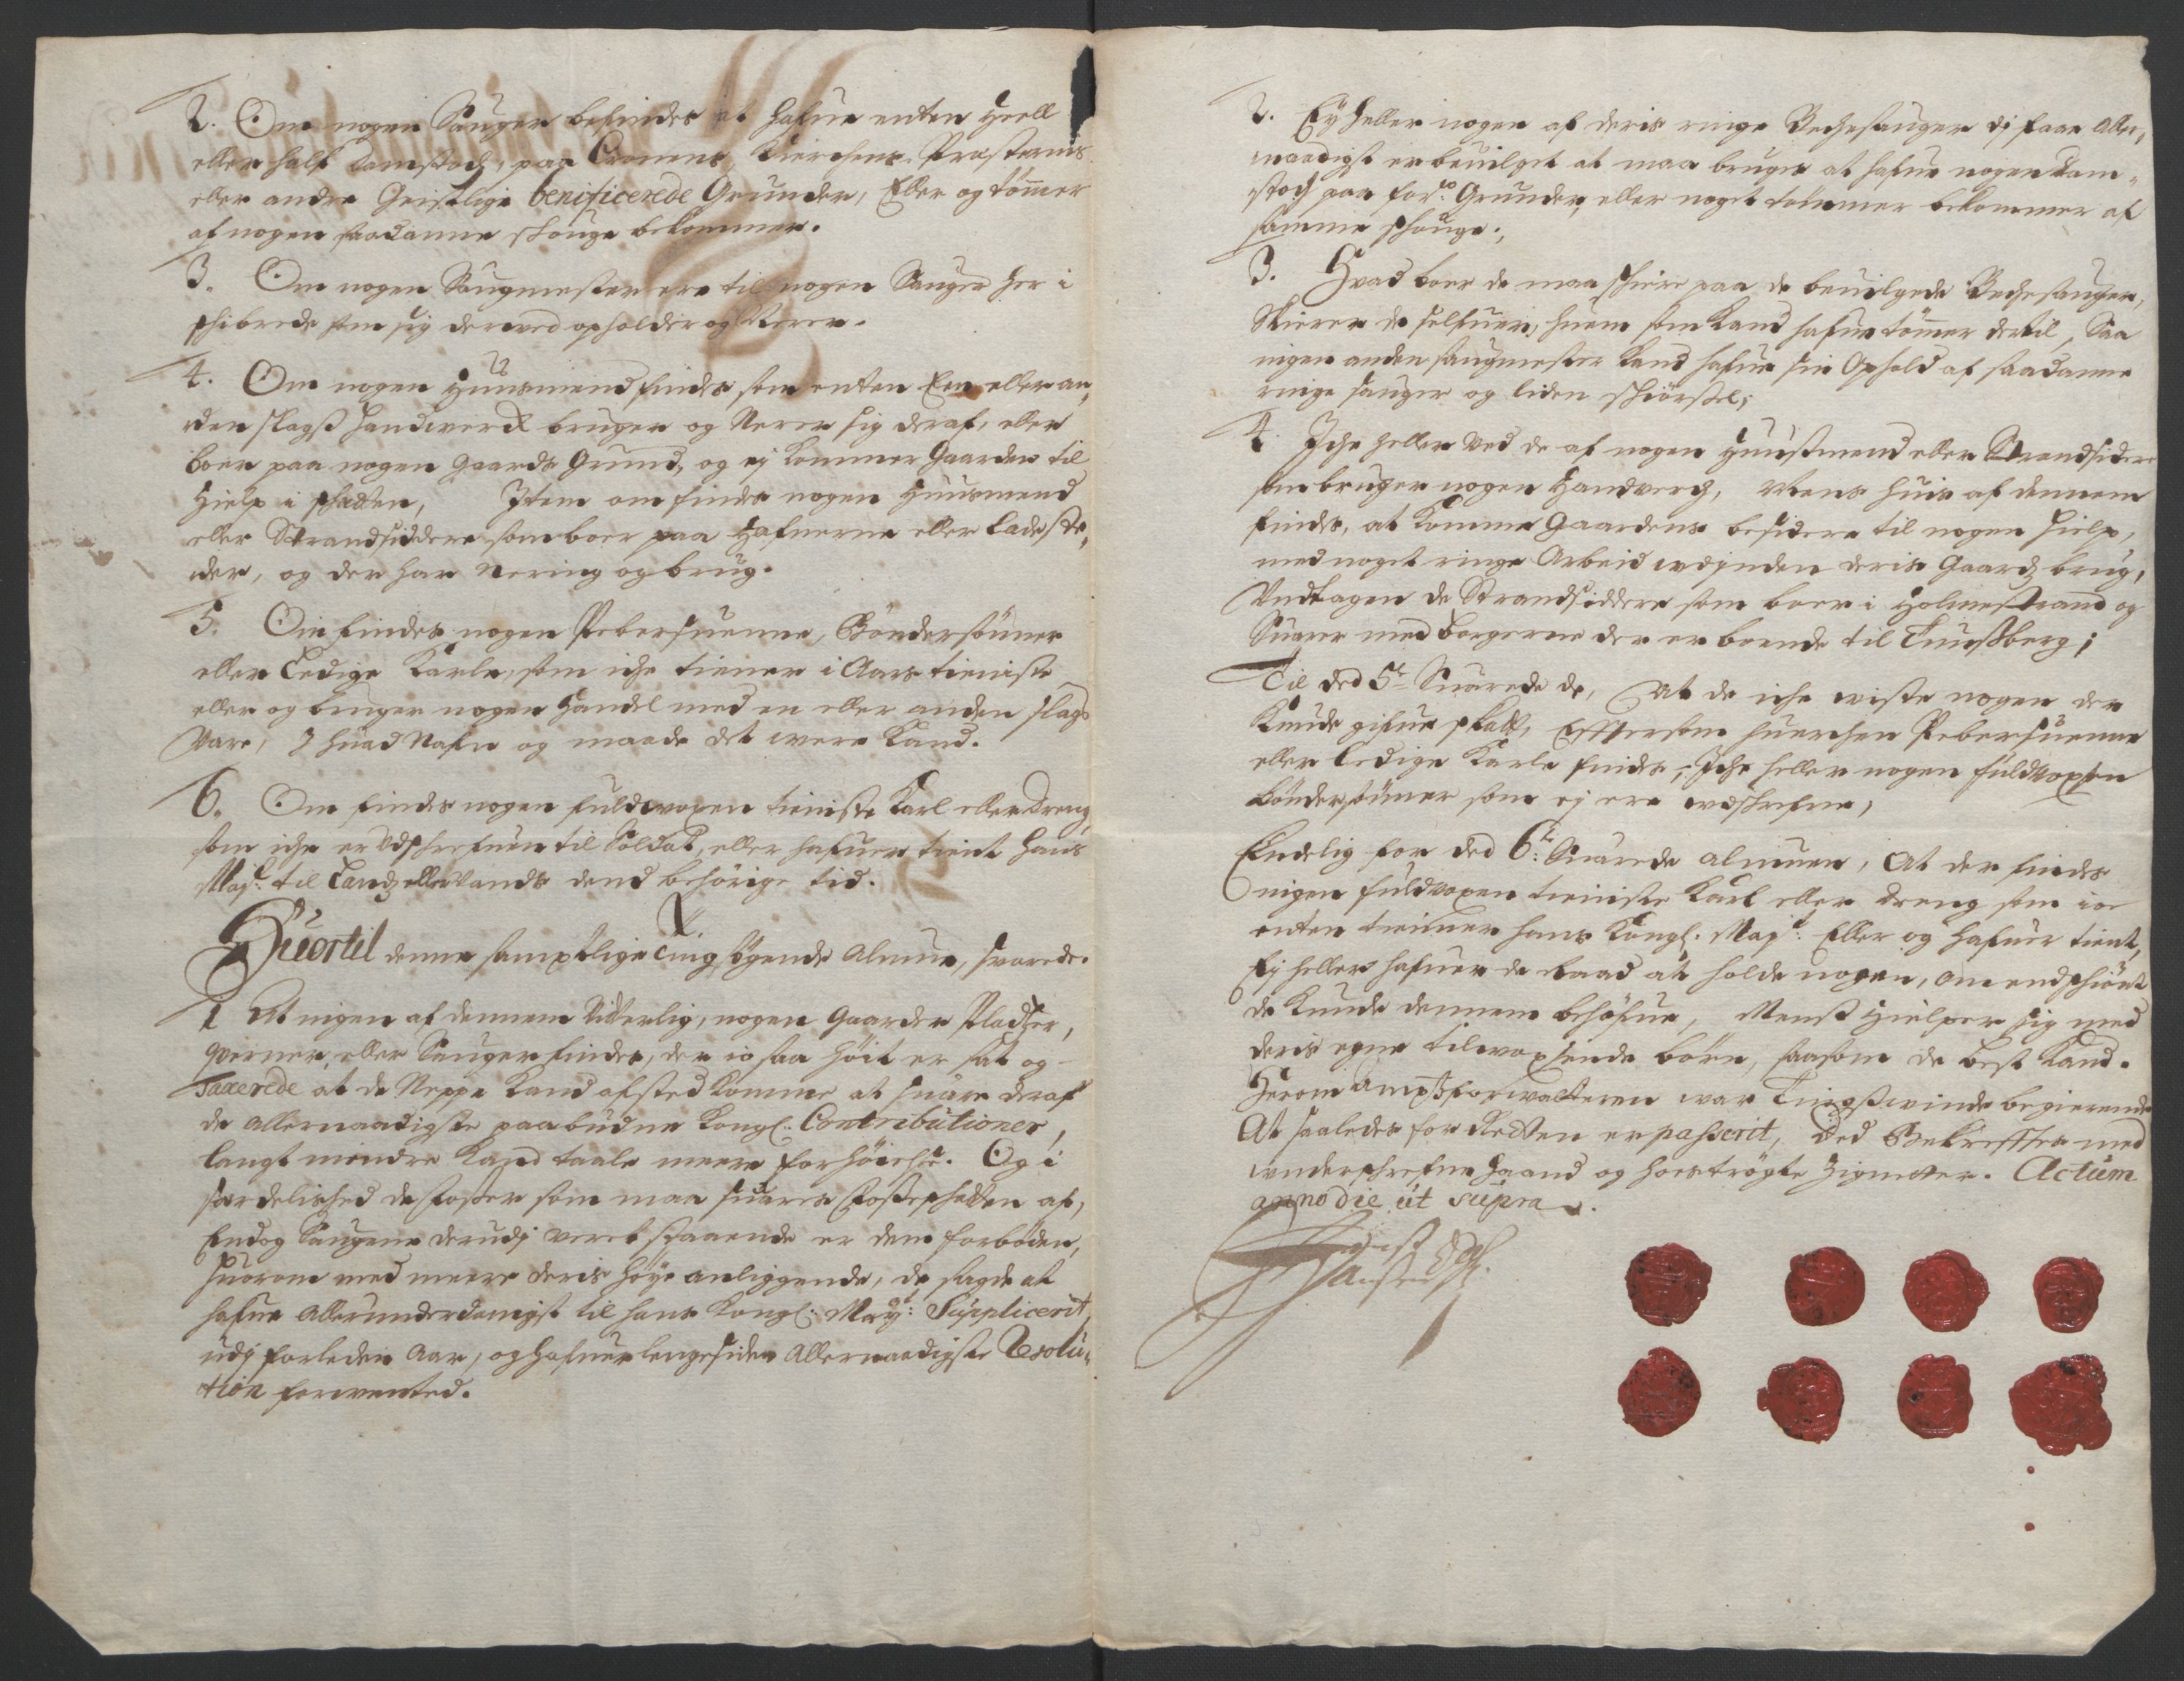 2. Om nogen Sauger befindes at hafue enten Heell
eller half damstoch, paa Cronens, Kierchens, Præsternis
eller andre Geistlige beneficerede Grunder, Eller og tømmer
af nogen saadanne schouge bekommer.
3. Om nogen Sougmester ere til nogen Sauger her i
schibrede som sig derved opholder og Nerer.
4. Om nogen Huusmend findes som enten Een eller an,
den slags handwerch bruger og Nerer sig deraf, eller
boer paa nogen Gaards Grund, og ej kommer Gaarden til
Hielp i schatten, Item om findes nogen Huusmend
eller Strandsiddere som boer paa Hafnerne eller Ladeste,
der, og der har Nering og brug.
5. Om findes nogen Pebersuenne, Bøndersønner
eller Ledige Karle, som iche tiener i Aars tieniste
eller og bruger nogen Handel med en eller anden slags
Vare, I huad Nafn og maade det were kand.
6. Om findes nogen fuldwoxen tieniste Karl eller dreng
som iche er Udschrefuen til Soldat, eller hafuer tient Hans
Majt: til Landz eller Vands dend behørige tid.
Huortil denne samptlige Ting søgende Almue, svarede.
1 At ingen af dennem Vitterlig, nogen Gaarder Pladtzer,
Qverner, eller Sauger findes, der io saa høit er sat og
Taxerede at de Neppe kand afsted komme at suare deraf
de allernaadigste paabudne Kongl: Contributioner,
langt mindre kand taale meere forhøielse. Og i
særdelished de fosser som maa suares fosseschatten af,
Endog Saugene derudj verchstaaende er dem forbøden,
huorom med meere deris høye anliggende, de sagde at
hafue allerunderdanigst til hans Kongl: May:t Suppliceret,
udj forleden Aar, og hafuer lenge siden allernaadigste Resolu,
tion forwented.
2. Ey heller nogen af deris ringe Bechesauger di faar Aller,
naadigst er beuilget at maa bruges at hafue nogen dam,
stoch paa for:ne Grunder, eller noget tømmer bekommer af
samme schouge.,
3. Hvad boer de maa schiere paa de beuilgede Bechesauger,
Skierer de selfuer, huem som kand hafue tømmer dertil, Saa
ingen anden saugmester kand hafue sin Ophold af saadanne
ringe sauger og liden schiørsel;
4. Iche heller Ved de af nogen Huusmend eller Strandsidere
som bruger nogen Handverch, Mens huis af dennem
findes, at komme Gaardens besidere til nogen hielp,
med noget ringe Arbeid wdjnden deris Gaardz brug,
Undtagen de Strandsiddere som boer i Holmestrand og
Suarer med borgerne der er boende til Tunssberg;
Til ded 5te Suarede de, At de iche wiste nogen der
kunde gifue schatt, Efftersom huerchen Pebersuenne
eller ledige Karle findes; Iche heller nogen fuldwoxsen
bøndersønner som ej ere wdschrefne,
Endelig for ded 6te: Suarede almuen, At der findes
ingen fuldwoxen tieniste Karl eller dreng som ioe
enten tienner hans Kongl. Majt: Eller og hafuer tient,
Ej heller hafuer de Raad at holde nogen, om endschiønt
de kunde dennem behøfue, Mens hielper sig med
deris egne tilwoxsende børn, saasom de best kand.
Herom Ampts forwalteren war Tingswinde begierende
At saaledes for Retten er passerit, Ded Bekreffter med
underschrefne haand og hoes trøgte Zigneter. Actum
anno die ut supra.